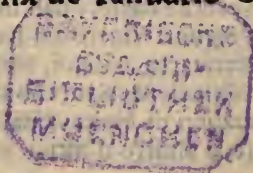 BAYERISCHE
STAATS-
BIBLIOTHEK
MUENCHEN